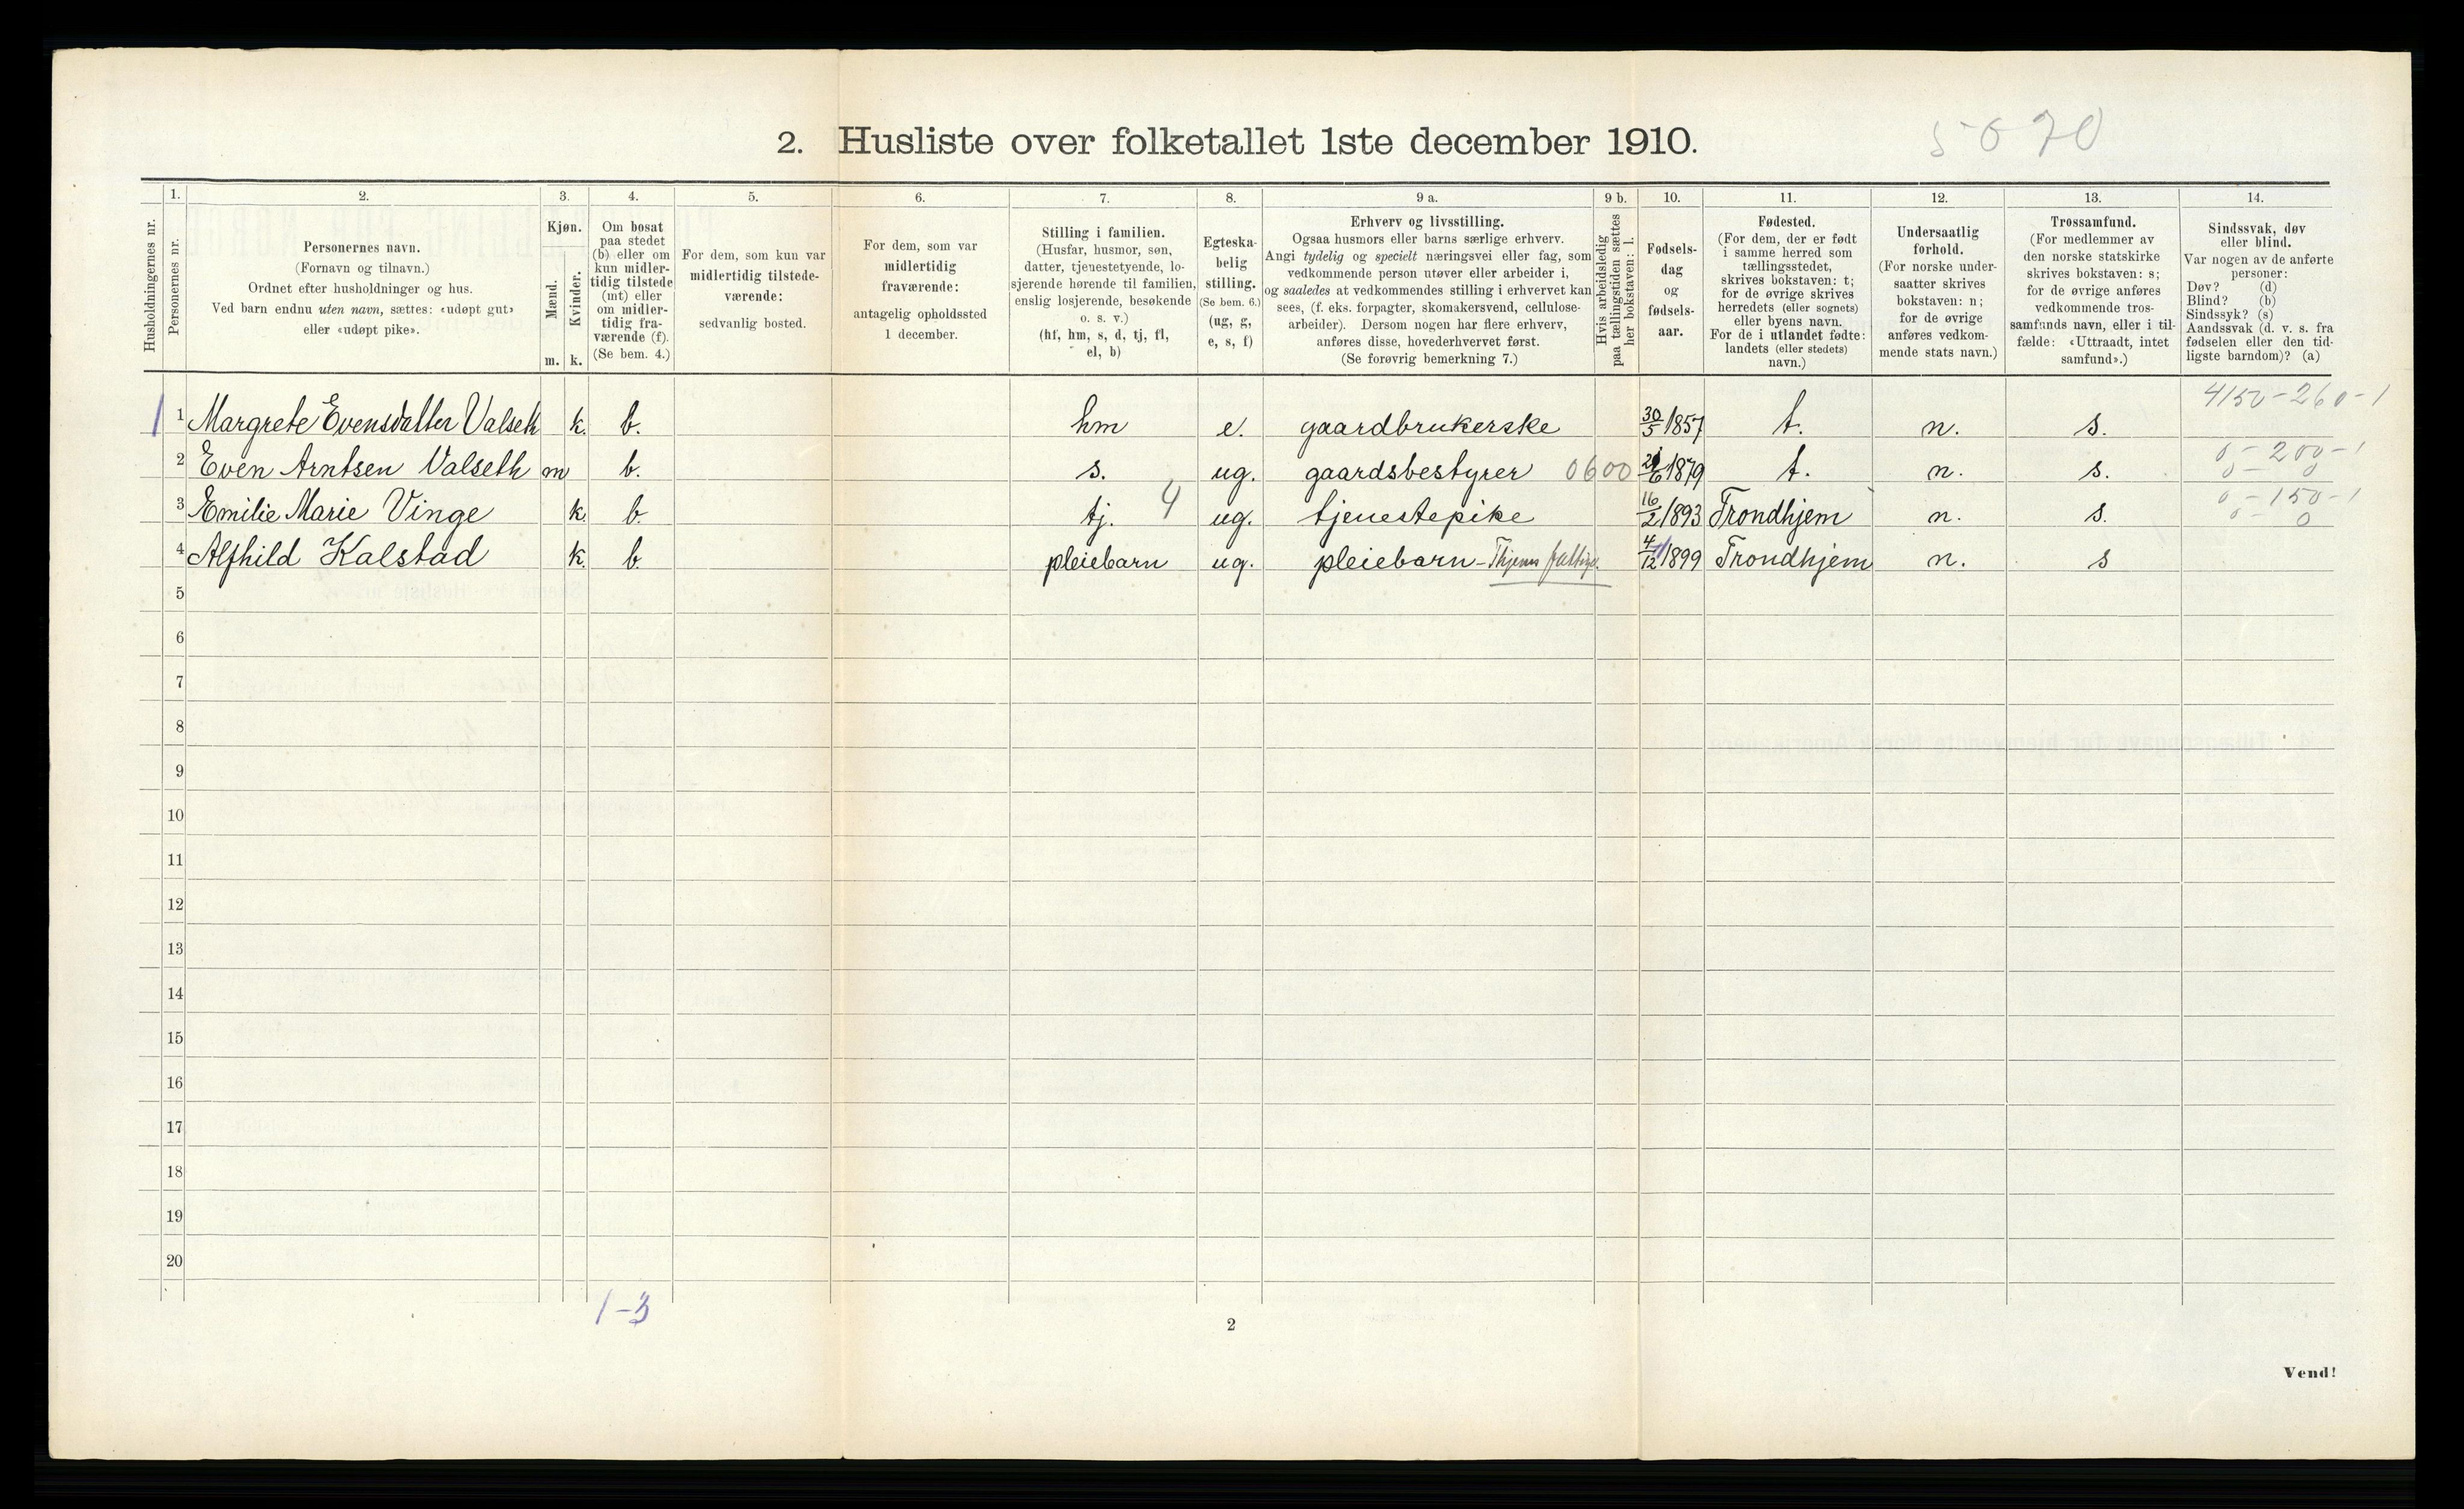 2. Husliste over folketallet 1ste december 1910.
5070
Husholdningernes nr.
1.
Personernes nr.
2.
Personernes navn.
(Fornavn og tilnavn.)
Ordnet efter husholdninger og hus.
Ved barn endnu uten navn, sættes: «udøpt gut»
eller «udøpt pike».
3.
Kjøn.
Mænd.
m.
Kvinder.
k.
4.
Om bosat
paa stedet
(b) eller om
kun midler-
tidig tilstede
(mt) eller
om midler-
tidig fra-
værende (f).
(Se bem. 4.)
5.
For dem, som kun var
midlertidig tilstede-
værende:
sedvanlig bosted.
6.
For dem, som var
midlertidig
fraværende:
antagelig opholdssted
1 december.
7.
Stilling i familien.
(Husfar, husmor, søn,
datter, tjenestetyende, lo-
sjerende hørende til familien,
enslig losjerende, besøkende
o. s. v.)
(hf, hm, s, d, tj, fl,
el, b)
8.
Egteska-
belig
stilling.
(Se bem. 6.)
(ug, g,
e, s, f)
9 a.
Erhverv og livsstilling.
Ogsaa husmors eller barns særlige erhverv.
Angi tydelig og specielt næringsvei eller fag, som
vedkommende person utøver eller arbeider i,
og saaledes at vedkommendes stilling i erhvervet kan
sees, (f. eks. forpagter, skomakersvend, cellulose-
arbeider). Dersom nogen har flere erhverv,
anføres disse, hovederhvervet først.
(Se forøvrig bemerkning 7.)
9 b.
Hvis arbeidsledig
paa tællingstiden sættes
her bokstaven: l.
10.
Fødsels-
dag
og
fødsels-
aar.
11.
Fødested.
(For dem, der er født
i samme herred som
tællingsstedet,
skrives bokstaven: t;
for de øvrige skrives
herredets (eller sognets)
eller byens navn.
For de i utlandet fødte:
landets (eller stedets)
navn.)
12.
Undersaatlig
forhold.
(For norske under-
saatter skrives
bokstaven: n;
for de øvrige
anføres vedkom-
mende stats navn.)
13.
Trossamfund.
(For medlemmer av
den norske statskirke
skrives bokstaven: s;
for de øvrige anføres
vedkommende tros-
samfunds navn, eller i til-
fælde: «Uttraadt, intet
samfund».)
14.
Sindssvak, døv
eller blind.
Var nogen av de anførte
personer:
Døv? (d)
Blind? (b)
Sindssyk? (s)
Aandssvak (d. v. s. fra
fødselen eller den tid-
ligste barndom)? (a)
4150-260-1
1 1 Margrete Evensdatter Valseth k. b. hm e. gaardbrukerske 30/5 1857 t. n. s.
0-200-1
2 Even Arntsen Valseth m b. s. ug. gaardsbestyrer 0600 /6 1879 t. n. s.
0 - 0
0-150-1
3 Emilie Marie Vinge k. b. tj. 4 ug. tjenestepike 16/2 1893 Trondhjem n. s.
0 - 0
4 Alfhild Kalstad k. b. pleiebarn ug. pleiebarn - Thjems fattigv. 4/12 1899 Trondhjem n. s
5
6
7
8
9
10
11
12
13
14
15
16
17
18
19
20
1-3
2
Vend!